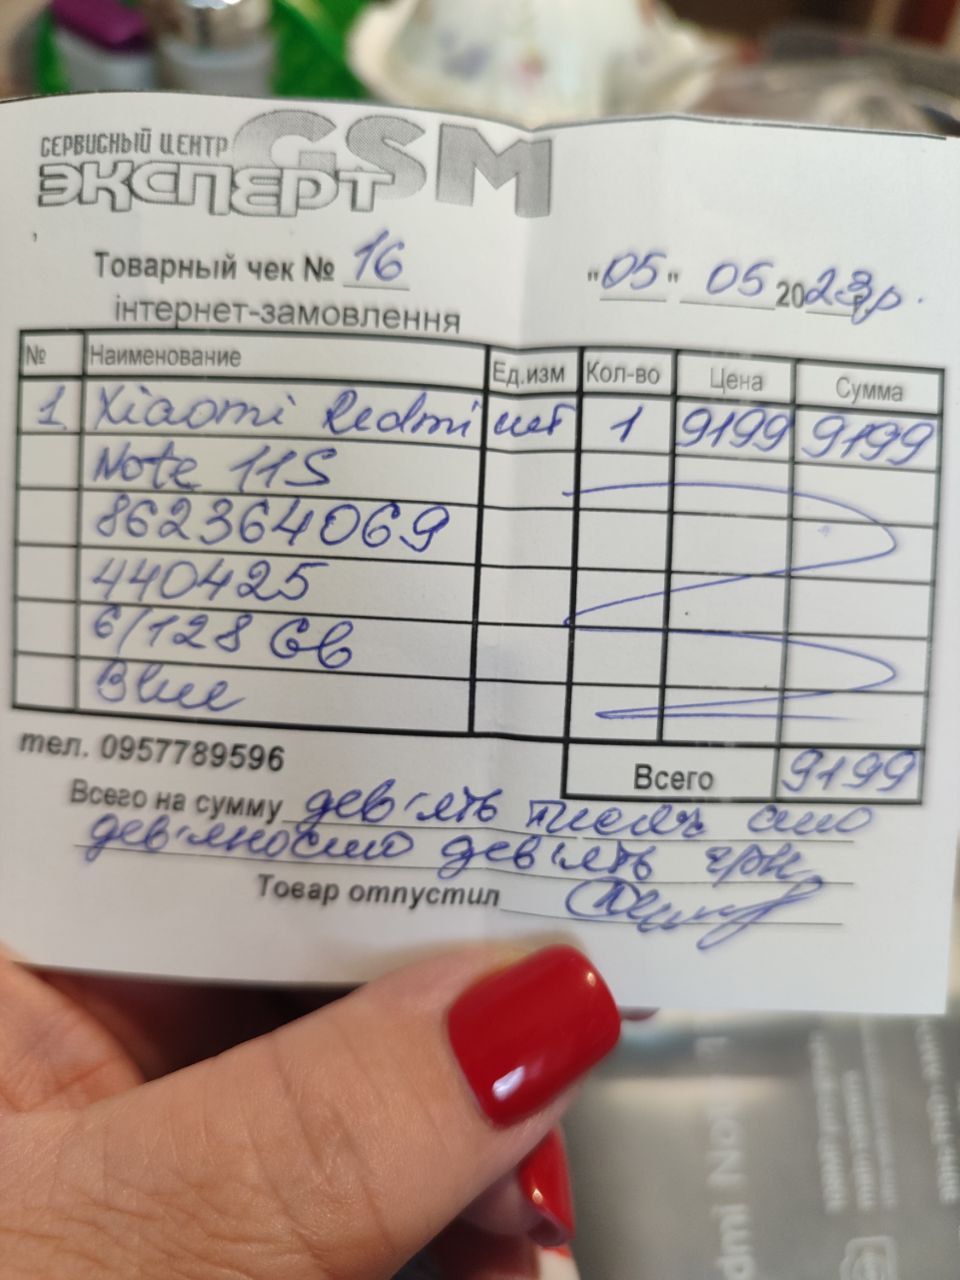 СЕРВИСНЫЙ ЦЕНТР GSM
ЭКСПЕРТ
Товарный чек № 16 "05" 05 2023р.
інтернет-замовлення
№ Наименование Ед.изм Кол-во Цена Сумма
1 Xiaomi Redmi шт 1 9199 9199
Note 11S
862364069
440425
6/128 Gb
Blue
тел. 0957789596 Всего 9199
Всего на сумму дев'ять тисяч сто
дев'яносто дев'ять грн.
Товар отпустил